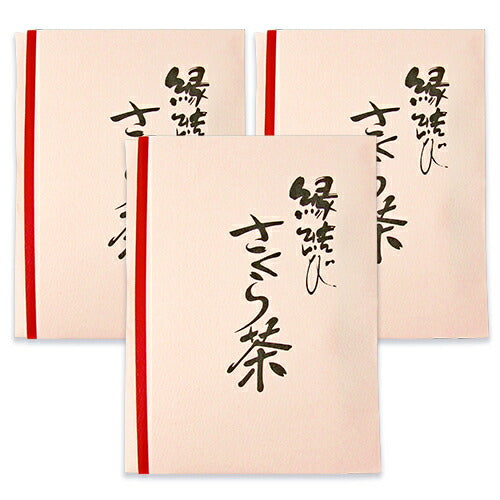 縁結び
さくら茶
縁結び
さくら茶
縁結び
さくら茶